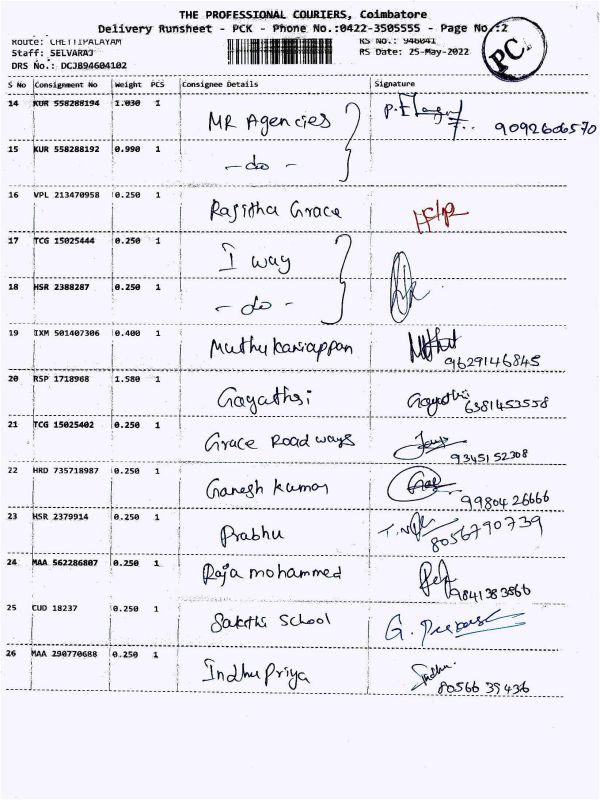 THE PROFESSIONAL COURIERS, Coimbatore
Delivery Runsheet - PCK - Phone No.:0422-3505555 - Page No.:2
PC.
Route: CHETTIPALAYAM RS No.: 946041
Staff: SELVARAJ RS Date: 25-May-2022
DRS No.: DCJB94604102
S No Consignment No Weight PCS Consignee Details Signature
14 KUR 558288194 1.030 1 MR Agencies
9092606570
15 KUR 558288192 0.990 1 - do -
16 VPL 213470958 0.250 1 Rajitha Grace
17 TCG 15025444 0.250 1 I way
18 HSR 2388287 0.250 1 - do -
19 IXM 501407306 0.400 1 Muthukariappan
9629146845
20 RSP 1718968 1.580 1 Gayathri Gayathri
6381453558
21 TCG 15025402 0.250 1 Grace Road ways
9345152308
22 HRD 735718987 0.250 1 Ganesh kumar
9980426666
23 HSR 2379914 0.250 1 Prabhu
8056790739
24 MAA 562286807 0.250 1 Raja mohammed
9841383566
25 CUD 18237 0.250 1 Sakthi School
26 MAA 290770688 0.250 1 Indhu Priya Indhu.
8056639436